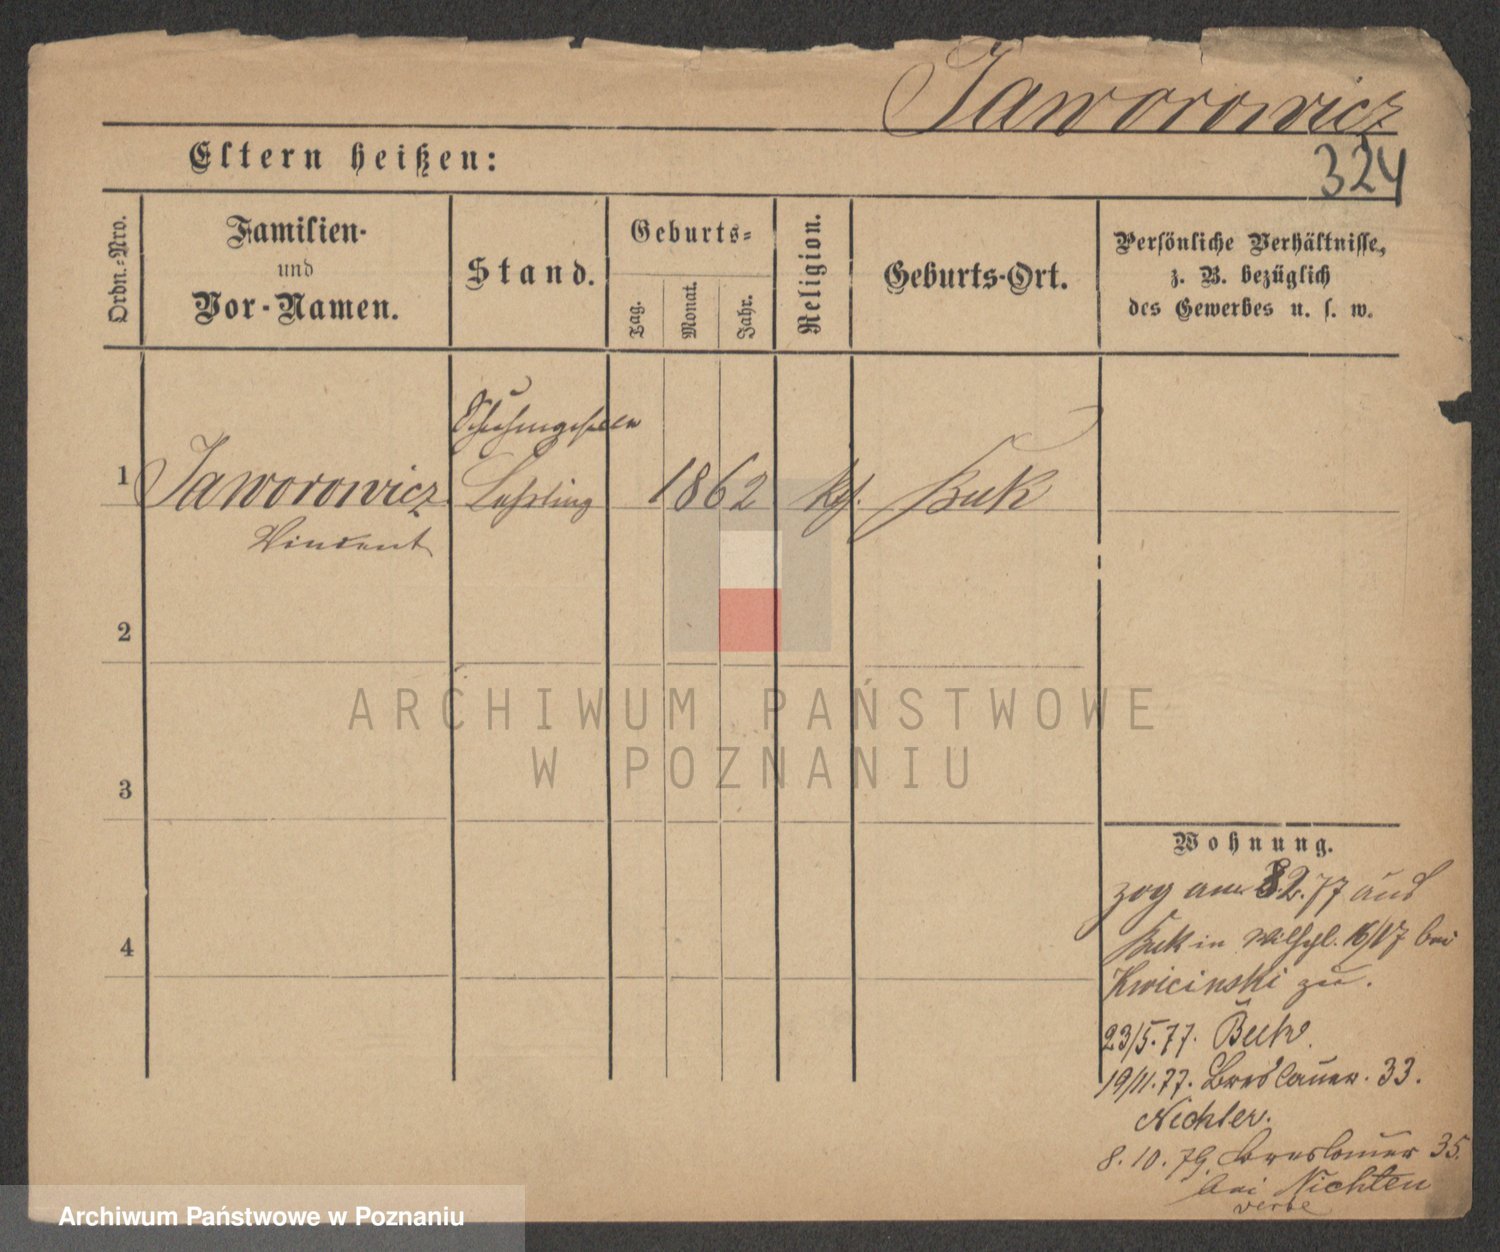 Jaworowicz
324
Eltern heißen:
Ordn.-Nro.
Familien-
und
Vor-Namen.
Stand.
Geburts-
Tag.
Monat.
Jahr.
Religion.
Geburts-Ort.
Persönliche Verhältnisse,
z. B. bezüglich
des Gewerbes u. s. w.
1
Jaworowicz
Vincent
Lehrling
1862
Kth.
Buk
2
3
4
Wohnung.
zog am 2.77 aus
Buk in Wilhpl. 16/17 bei
Kwicinski zu.
23/5.77. Buk.
19/11.77. Breslauer. 33.
Nechler.
8.10.79. Breslauer 35.
bei Nichten
ARCHIWUM PAŃSTWOWE
W POZNANIU
Archiwum Państwowe w Poznaniu